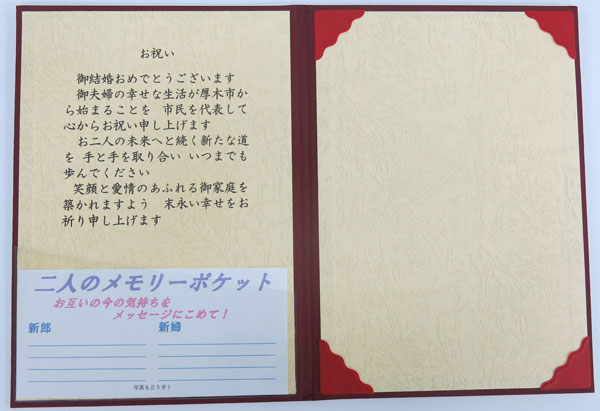 お祝い
御結婚おめでとうございます
御夫婦の幸せな生活が厚木市か
ら始まることを　市民を代表して
心からお祝い申し上げます
お二人の未来へと続く新たな道
を 手と手を取り合い いつまでも
歩んでください
笑顔と愛情のあふれる御家庭を
築かれますよう　末永い幸せをお
祈り申し上げます
二人のメモリーポケット
お互いの今の気持ちを
メッセージにこめて！
新郎 新婦
写真もどうぞ！